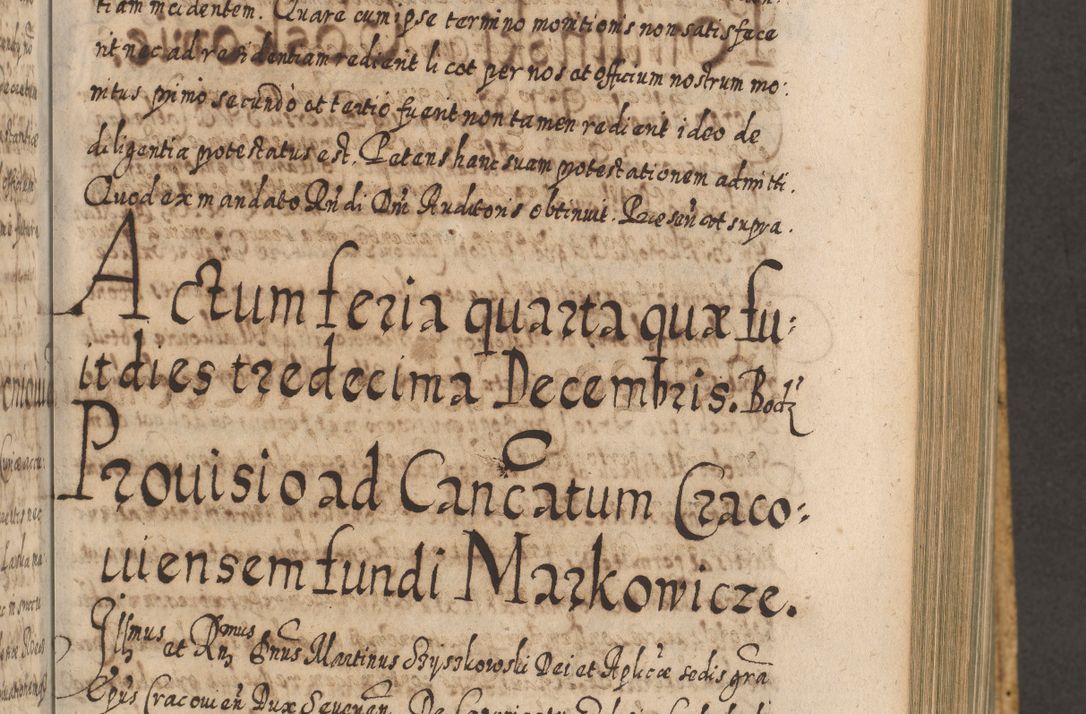 tiam incidentem. Quare cum ipse termino monitionis non satisfece
rit nec ad residentiam redierit licet per nos et officium nostrum mo:
nitus primo secundo et tertio fuerit non tamen redierit ideo de
diligentia protestatus est. Petens hanc suam protestationem admitti.
Quod ex mandato Rñdi Dñi Auditoris obtinuit. Præseñ et supra.
Actum feria quarta quæ fu:
it dies tredecima Decembris.
Prouisio ad Canćatum Craco:
uiensem fundi Markowicze.
Illmus et Rmus Dnus Martinus Szyszkowski Dei et Aplicæ sedis gra
Epus Cracouien Dux Seuerien